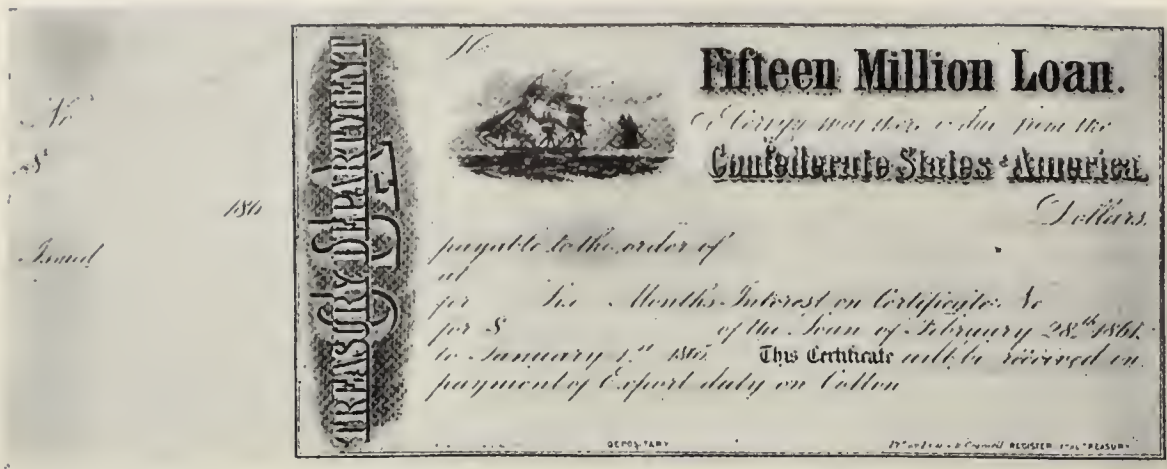 No
$
186
Issued
TREASURY DEPARTMENT
C S A
No.
Fifteen Million Loan.
there is due from the
Confederate States of America,
Dollars.
payable to the order of
at
for Six Months Interest on Certificate No
for $ of the Loan of February 28th 1861.
to January 1st 186 This Certificate will be received in
payment of Export duty on Cotton
DEPOSITARY
REGISTER TREASURY